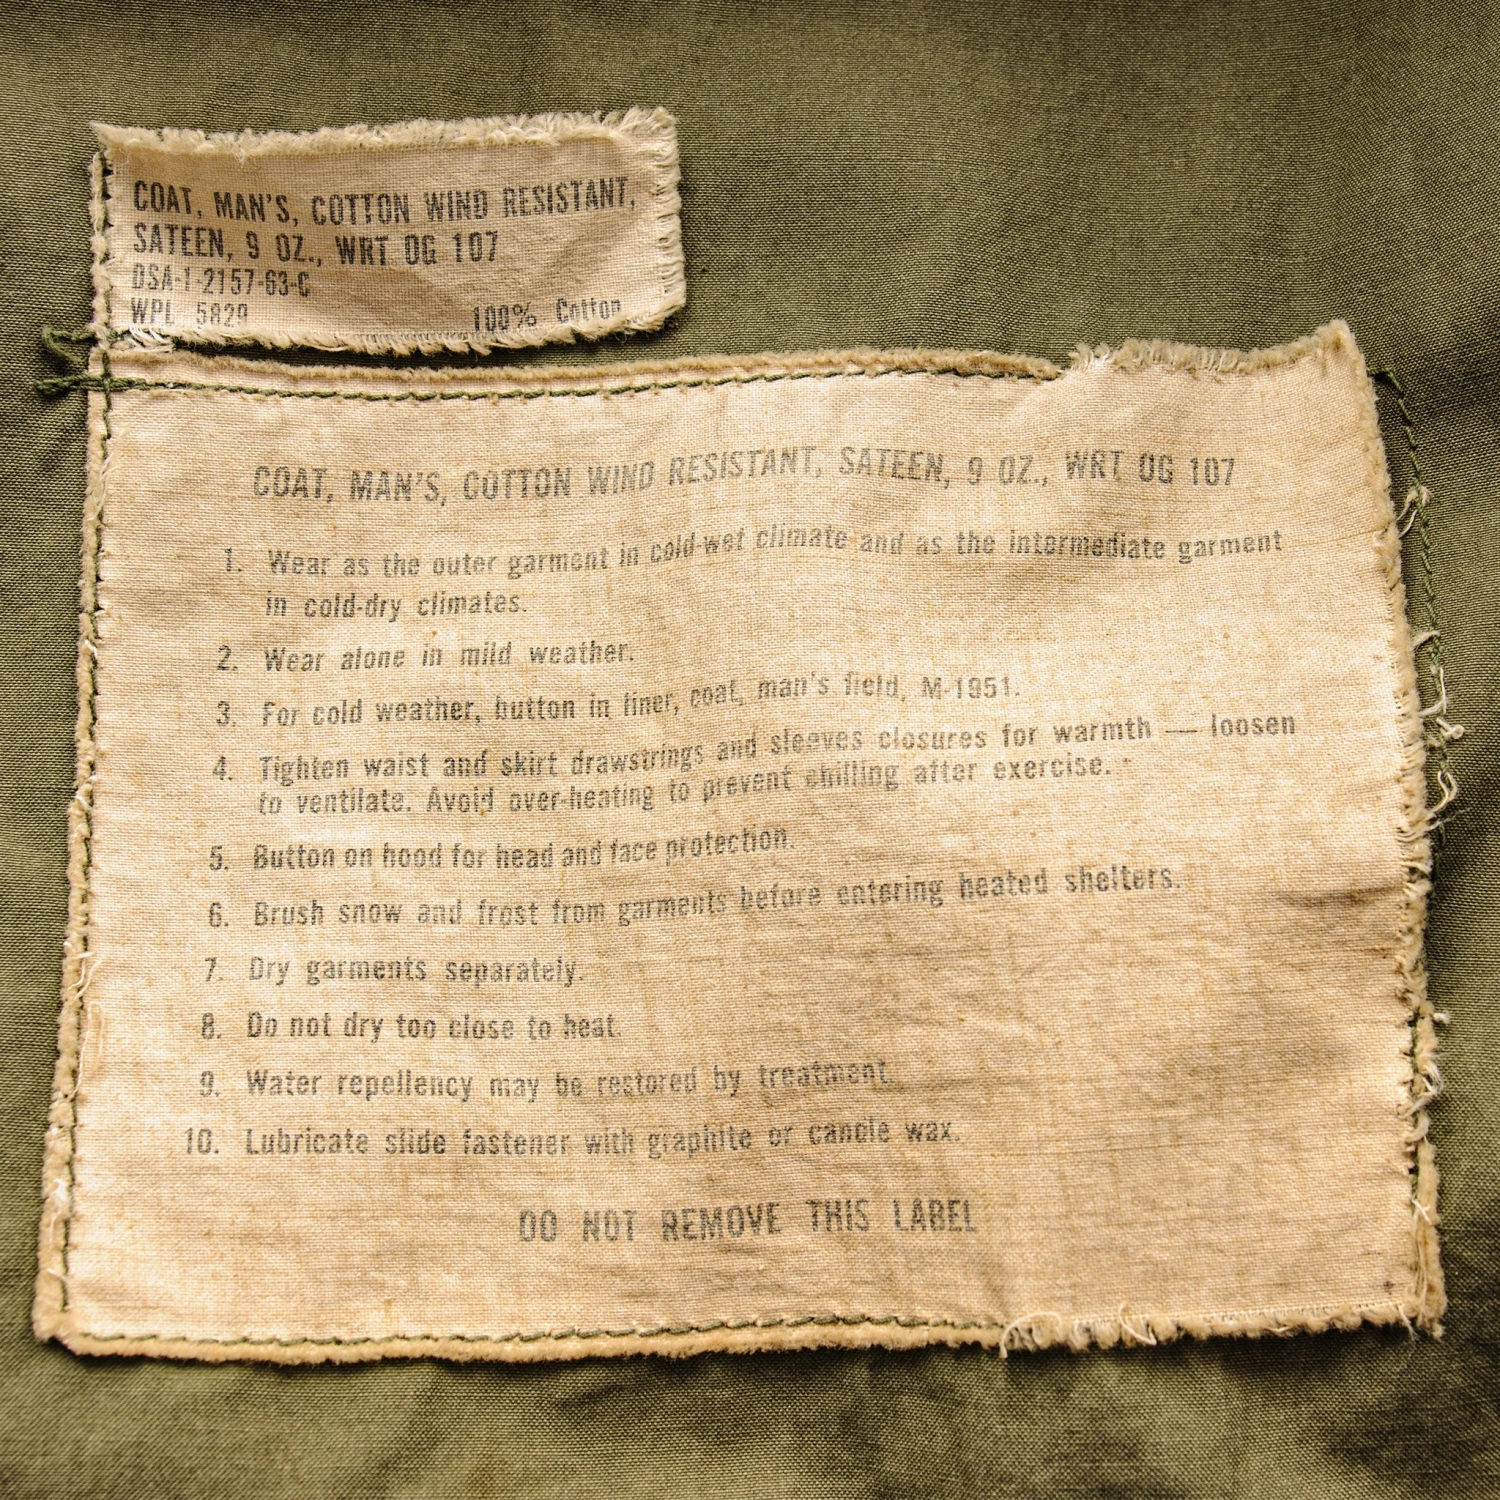 COAT, MAN'S, COTTON WIND RESISTANT,
SATEEN, 9 OZ., WRT OG 107
DSA-1-2157-63-C
WPL 5829 100% Cotton
COAT, MAN'S, COTTON WIND RESISTANT, SATEEN, 9 OZ., WRT OG 107
1. Wear as the outer garment in cold-wet climate and as the intermediate garment
in cold-dry climates.
2. Wear alone in mild weather.
3. For cold weather, button in liner, coat, man's field, M-1951.
4. Tighten waist and skirt drawstrings and sleeves closures for warmth — loosen
to ventilate. Avoid over-heating to prevent chilling after exercise.
5. Button on hood for head and face protection.
6. Brush snow and frost from garments before entering heated shelters.
7. Dry garments separately.
8. Do not dry too close to heat.
9. Water repellency may be restored by treatment.
10. Lubricate slide fastener with graphite or candle wax.
DO NOT REMOVE THIS LABEL